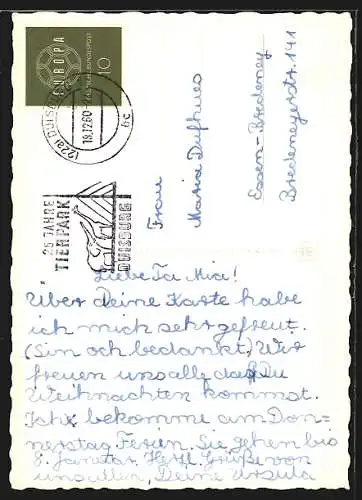 EUROPA
DEUTSCHE BUNDESPOST
10
(22a) DUISBURG
18.12.60
bc
25 JAHRE
TIERPARK
DUISBURG
Frau
Maria Dufhues
Essen-Bredeney
Bredeneyerstr. 141
Liebe Ta Mia!
Über Deine Karte habe
ich mich sehr gefreut.
(Sin och bedankt) Wir
freuen uns alle daß Du
Weihnachten kommst.
Ich bekomme am Don-
nerstag Ferien. Sie gehen bis
8. Januar. Herzl. Grüße von
uns allen, Deine Ursula